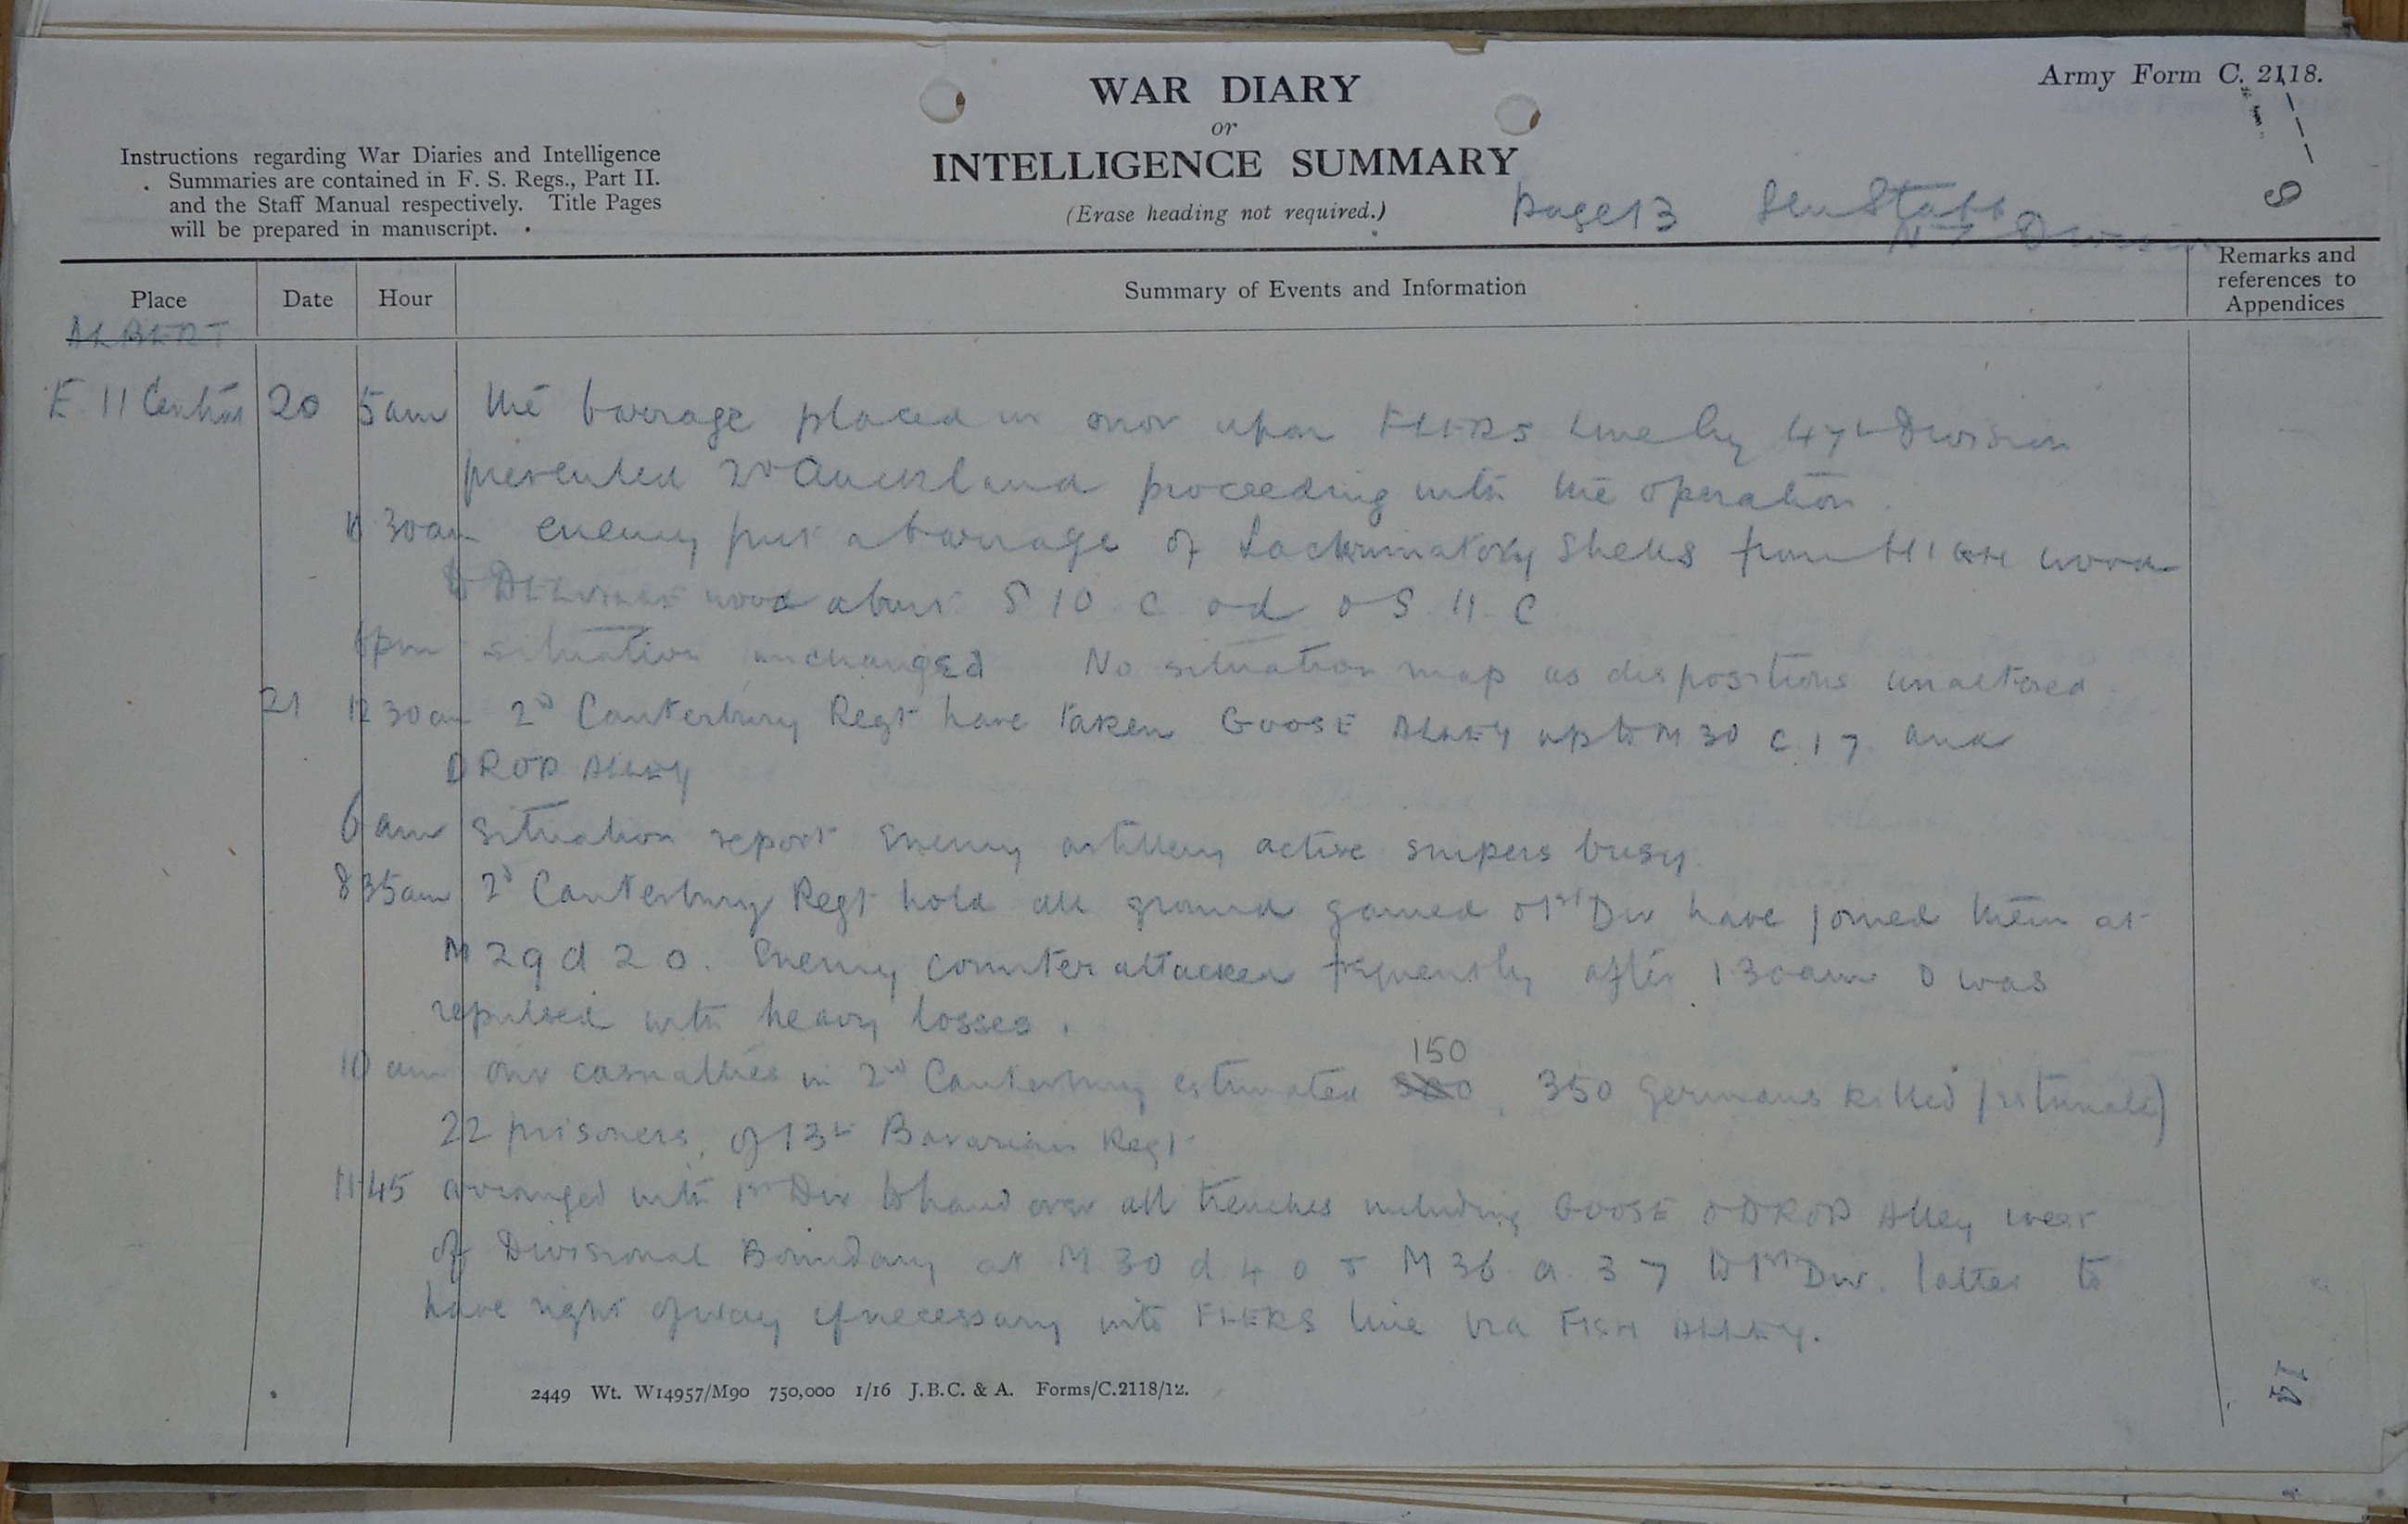 Army Form C. 2118.
WAR DIARY
or
INTELLIGENCE SUMMARY
(Erase heading not required.)
Instructions regarding War Diaries and Intelligence
Summaries are contained in F. S. Regs., Part II.
and the Staff Manual respectively. Title Pages
will be prepared in manuscript.
Page 13 Gen Staff
NZ Division
Place Date Hour Summary of Events and Information Remarks and references to Appendices
ALBERT
E 11 Central 20 5am the barrage placed in error upon FLERS Line by 47th Division
prevented 2nd Auckland proceeding with the operation
30am enemy put a barrage of Lachrimatory Shells from HIGH wood
to DELVILLE wood about S 10 c d & S 11 c
6pm situation unchanged No situation map as dispositions unaltered
21 12 30am 2nd Canterbury Regt have taken GOOSE ALLEY up to M 30 c 1 7 and
DROP ALLEY
6am situation report Enemy artillery active snipers busy
8 35am 2d Canterbury Regt hold all ground gained & 1st Div have joined them at
M 29 d 2 0. Enemy counter attacked frequently after 1 30am & was
repulsed with heavy losses.
10 am our casualties in 2nd Canterbury estimated 150, 350 Germans killed (estimate)
22 prisoners, of 13th Bavarian Regt
11 45 arranged with 1st Div to hand over all trenches including GOOSE & DROP Alley west
of Divisional Boundary at M 30 d 4 0 & M 36 a 3 7 to 1st Div. latter to
have right of way if necessary into FLERS line via FISH ALLEY.
2449 Wt. W14957/M90 750,000 1/16 J.B.C. & A. Forms/C.2118/12.